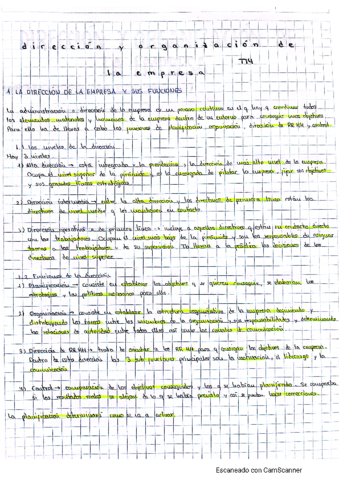 dirección y organización de
T14
la empresa
1. LA DIRECCIÓN DE LA EMPRESA Y SUS FUNCIONES
La administración o dirección de la empresa es un proceso continuo en el q hay q combinar todos
los elementos materiales y humanos de la empresa dentro de un entorno para conseguir unos objetivos
Para ello ha de llevar a cabo los procesos de planificación organización, dirección de RRHH y control.
1.1. Los niveles de la dirección
Hay 3 niveles
1) Alta dirección → está integrada x la presidencia y la dirección de más alto nivel de la empresa
Ocupa el nivel superior de la pirámide y es la encargada de pilotar la empresa, fijar sus objetivos
y sus grandes líneas estratégicas
2) Dirección intermedia → entre la alta dirección y los directivos de primera línea están los
directivos de nivel medio q los mantienen en contacto
3) Dirección operativa o de primera línea → incluye a aquellos directivos q están en contacto directo
con los trabajadores. Ocupan el nivel más bajo de la pirámide y son los responsables de asignar
tareas a los trabajadores y de su supervisión. Ha llevan a la práctica las decisiones de los
directivos de nivel superior
1.2. Funciones de la dirección
1) Planificación → consiste en establecer los objetivos q se quieren conseguir, y elaborar las
estrategias y las políticas necesarias para ello
2) Organización → consiste en establecer la estructura organizativa de la empresa definiendo y
distribuyendo las tareas entre los miembros de la organización y sus responsabilidades, y determinando
las relaciones de autoridad entre todos ellos así como los canales de comunicación
3) Dirección de RRHH → trata de orientar a los RRHH para q consigan los objetivos de la empresa.
Dentro de esta dirección los 3 ejes principales son la motivación, el liderazgo y la
comunicación
4) Control → comparación de los objetivos conseguidos y los q se habían planificado. Se comprueba
si los resultados reales se alejan de lo q se había previsto y así se puedan hacer correcciones.
La planificación determinará como se va a actuar.
Escaneado con CamScanner